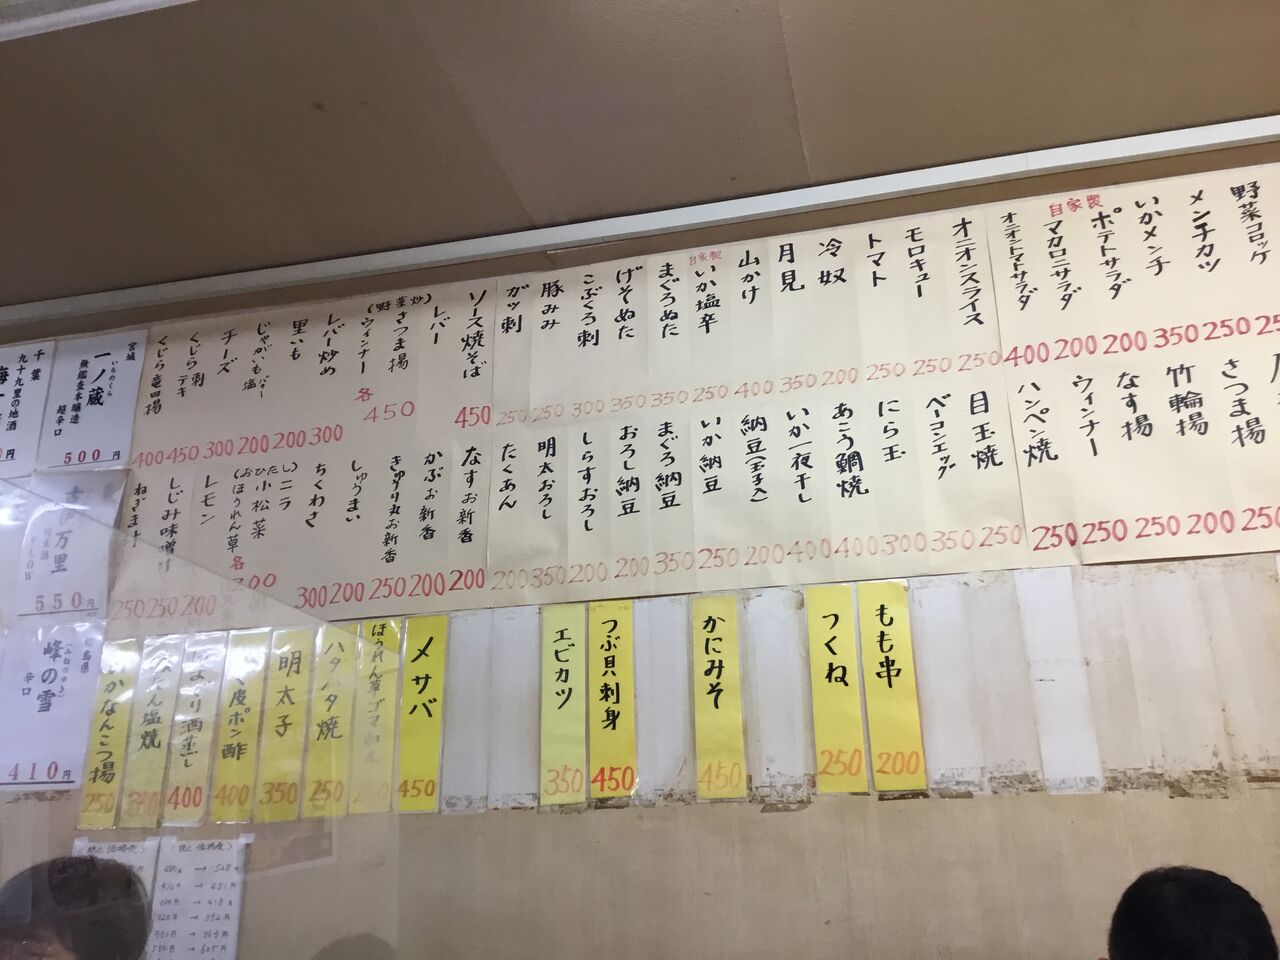 野菜コロッケ
250
メンチカツ
250
いかメンチ
350
ポテトサラダ
200
自家製
マカロニサラダ
200
オニオントマトサラダ
400
オニオンスライス
250
モロキュー
250
トマト
250
冷奴
200
月見
350
山かけ
400
自家製
いか塩辛
250
まぐろぬた
350
げそぬた
350
こぶくろ刺
300
豚みみ
250
ガツ刺
250
ソース焼そば
450
(野菜炒)
レバー
さつま揚
ウィンナー
各
450
レバー炒め
300
里いも
200
じゃがいも塩バター
200
チーズ
300
くじら刺
テキ
450
くじら竜田揚
400
さつま揚
250
竹輪揚
200
なす揚
250
ウィンナー
250
ハンペン焼
250
目玉焼
250
ベーコンエッグ
350
にら玉
300
あこう鯛焼
400
いか一夜干し
400
納豆(玉子入)
200
いか納豆
250
まぐろ納豆
350
おろし納豆
200
しらすおろし
200
明太おろし
350
たくあん
200
なすお新香
200
かぶお新香
200
きゅうり丸お新香
250
しゅうまい
200
ちくわさ
300
(おひたし)
ニラ
小松菜
ほうれん草
各
200
レモン
200
しじみ味噌汁
250
ねぎま汁
250
宮城
いちのくら
一ノ蔵
無鑑査本醸造
超辛口
500円
千葉
九十九里の地酒
万里
550円
島県
峰の雪
(みねのゆき)
辛口
410円
もも串
200
つくね
250
かにみそ
450
つぶ貝刺身
450
エビカツ
350
メサバ
450
ほうれん草ゴマ和え
ハタハタ焼
250
明太子
350
皮ポン酢
400
酒蒸し
400
塩焼
350
かなんこつ揚
250